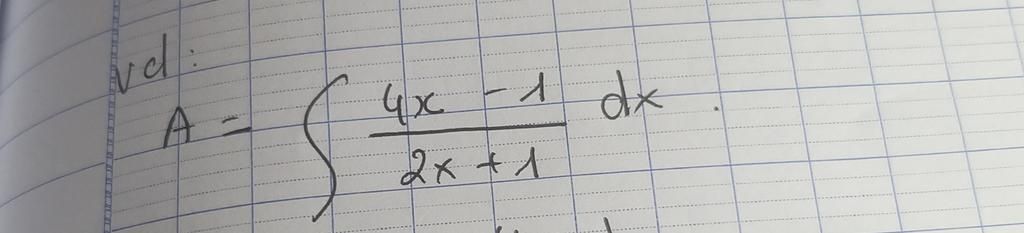 vd:
A = ∫ (4x - 1)/(2x + 1) dx.